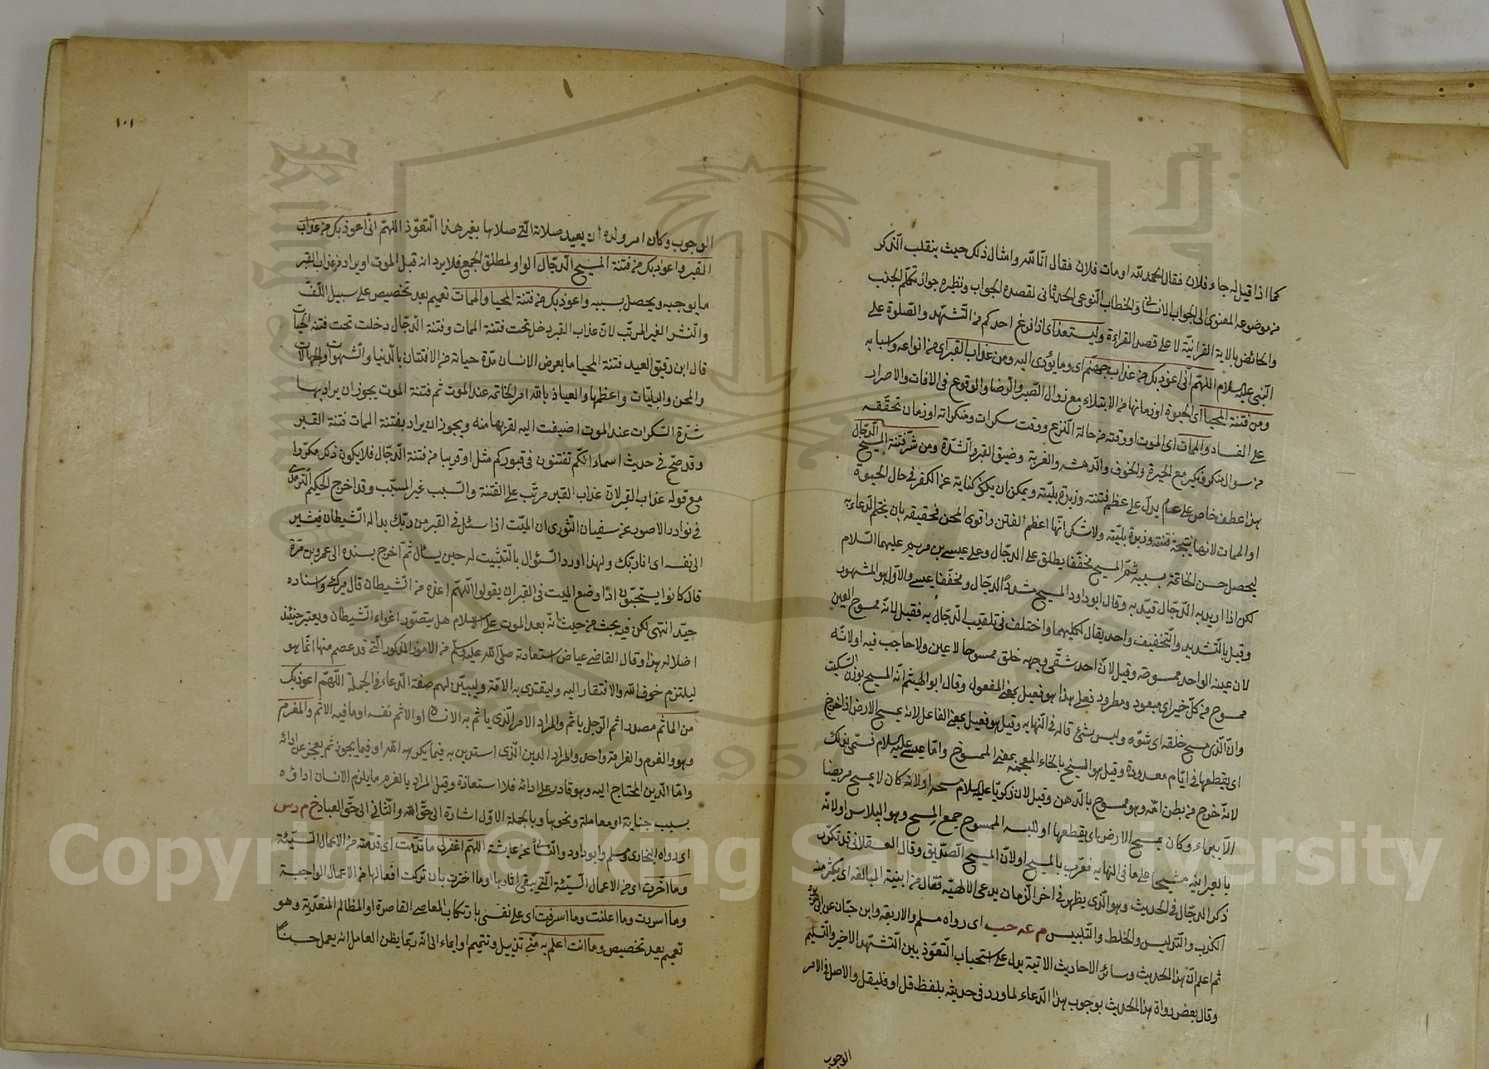 كما اذا قيل له جاء فلان فقال الحمد لله او مات فلان فقال انا لله وامثال ذلك حيث ينقلب الذكر
من موضوعه المعنوى الى الجواب الانسانى والخطاب النوعى الحدثانى لقصده الجواب ونظيره جواز تكلم الجنب
والحائض بالاية القرانية لا على قصد القراءة وليستعذ اى اذا فرغ احدكم من التشهد والصلوة على
النبى عليه السلام اللهم انى اعوذ بك من عذاب جهنم اى وما يؤدى اليه ومن عذاب القبر اى من انواعه واسبابه
ومن فتنة المحيا اى الحيوة او زمانها من الابتلاء مع زوال الصبر والرضا والوقوع فى الافات والاصرار
على الفساد والممات اى الموت او وقته من حالة النزع ووقت سكرات ومنكراته او زمان تحققه
من سؤال منكر ونكير مع الحيرة والخوف والدهشة والغربة وضيق القبر والشدة ومن شر فتنة المسيح الدجال
هذا عطف خاص على عام يدل على عظم فتنته وزبدة بليته ويمكن ان يكون كناية عن الكفر فى حال الحيوة
او الممات لانها نتيجة فتنته وزبدة بليته ولا شك انها اعظم الفتن واقوى المحن فحقيقة بان يختم الدعاء به
ليحصل حسن الخاتمة بسببه ثم المسيح مخففا يطلق على الدجال وعلى عيسى بن مريم عليهما السلام
لكن اذا اريد به الدجال قيد به وقال ابو داود المسيح مشددا الدجال ومخففا عيسى والاول هو المشهور
وقيل بالتشديد والتخفيف واحد يقال لكليهما واختلف فى تلقيب الدجال به فقيل لانه ممسوح العين
لان عينه الواحد ممسوحة وقيل لان احد شقى وجهه خلق ممسوحا لا عين ولا حاجب فيه اولانه
ممسوح من كل خير اى مبعود ومطرود فعلى هذا هو فعيل بمعنى المفعول وقال ابو الهيثم انه المسيح بوزن السكيت
وانه الذى مسح خلقه اى شوه وليس بشئ قاله فى النهاية وقيل هو فعيل بمعنى الفاعل لانه يمسح الارض اذا خرج
اى يقطعها فى ايام معدودة وقيل هو المسيخ بالخاء المعجمة بمعنى الممسوخ واما عيسى عليه السلام فسمى بذلك
لانه خرج من بطن امه وهو ممسوح بالدهن وقيل لان زكريا عليه السلام مسحه اولانه كان لا يمسح مريضا
الا يبراء وكان يمسح الارض اى يقطعها او للبسه المسوح جمع المسح وهو البلاس اولانه
بالعبرانية مشيحا على ما فى النهاية فعرب بالمسيح اولان المسيح الصديق وقال العسقلانى قد تكرر
ذكر الدجال فى الحديث وهو الذى يظهر فى اخر الزمان يدعى الالهية فقال من ابنية المبالغة اى يكثر منه
الكذب والتدليس والخلط والتلبيس م عه حب اى رواه مسلم والاربعة وابن حبان عن ابى هريرة
ثم اعلم ان هذا الحديث وسائر الاحاديث الاتية يدل على استحباب التعوذ بين التشهد الاخير والتسليم
وقال بعض رواة هذا الحديث بوجوب هذا الدعاء لما ورد فى حديثه بلفظ قل او فليقل والاصل فى الامر
الوجوب
١٠١
الوجوب وكان امر ولده ان يعيد صلاته التى صلاها بغير هذا التعوذ اللهم انى اعوذ بك من عذاب
القبر واعوذ بك من فتنة المسيح الدجال الواو لمطلق الجمع فلا يرد انه قبل الموت او يراد من عذاب القبر
ما يوجبه ويحصل بسببه واعوذ بك من فتنة المحيا والممات تعميم بعد تخصيص على سبيل اللف
والنشر الغير المرتب لان عذاب القبر دخل تحت فتنة الممات وفتنة الدجال دخلت تحت فتنة المحيا
قال ابن دقيق العيد فتنة المحيا ما يعرض الانسان مدة حياته من الافتتان بالدنيا والشهوات والجهالات
والمحن والبليات واعظمها والعياذ بالله امر الخاتمة عند الموت ثم فتنة الموت يجوز ان يراد بها
شدة السكرات عند الموت اضيفت اليه لقربها منه ويجوز ان يراد بفتنة الممات فتنة القبر
وقد صح فى حديث اسماء انكم تفتنون فى قبوركم مثل او قريبا من فتنة الدجال فلا يكون ذكر مكررا
مع قوله عذاب القبر لان عذاب القبر مرتب على الفتنة والسبب غير المسبب وقد اخرج الحكيم الترمذى
فى نوادر الاصول عن سفيان الثورى ان الميت اذا سئل فى القبر من ربك بدا له الشيطان فيشير
الى نفسه اى انا ربك ولهذا ورد السؤال بالتثبيت له حين يسأل ثم اخرج بسنده الى عمرو بن مرة
قال كانوا يستحبون اذا وضع الميت فى القبر ان يقولوا اللهم اعذه من الشيطان قال ميرك واسناده
جيد انتهى لكن فيه بحث من حيث انه بعد الموت على الاسلام هل يتصور اغواء الشيطان ويعتبر حينئذ
اضلاله هذا وقال القاضى عياض استعاذة صلى الله عليه وسلم من الامور المذكورة التى قد عصم منها انما هو
ليلتزم خوف الله والافتقار اليه وليقتدى به الامة وليبين لهم صفة الدعاء فى الجملة اللهم اعوذ بك
من الماثم مصدر اثم الرجل ياثم والمراد الامر الذى ياثم به الانسان او الاثم نفسه او ما فيه الاثم والمغرم
وهو والغرم والغرامة واحد والمراد الدين الذى استدين به فيما يكرهه الله او فيما يجوز ثم يعجز عن ادائه
واما الدين المحتاج اليه وهو قادر على ادائه فلا استعاذة وقيل المراد بالغرم ما يلزم الانسان اداؤه
بسبب جناية او معاملة ونحوها وبالجملة الاول اشارة الى حق الله والثانى الى حق العباد خ م د س
اى رواه البخارى ومسلم وابو داود والنسائى عن عائشة اللهم اغفر لى ما قدمت اى قدمته من الاعمال السيئة
وما اخرت اى من الاعمال السيئة التى يبقى اثارها او ما اخرت بان تركت افعالها من الاعمال الواجبة
وما اسررت وما اعلنت وما اسرفت اى على نفسى بارتكاب المعاصى القاصرة او المظالم المتعدية وهو
تعميم بعد تخصيص وما انت اعلم به منى تذييل وتتميم او ايماء الى انه ربما يظن العامل انه يعمل حسنا
Copyright © King Saud University
1957